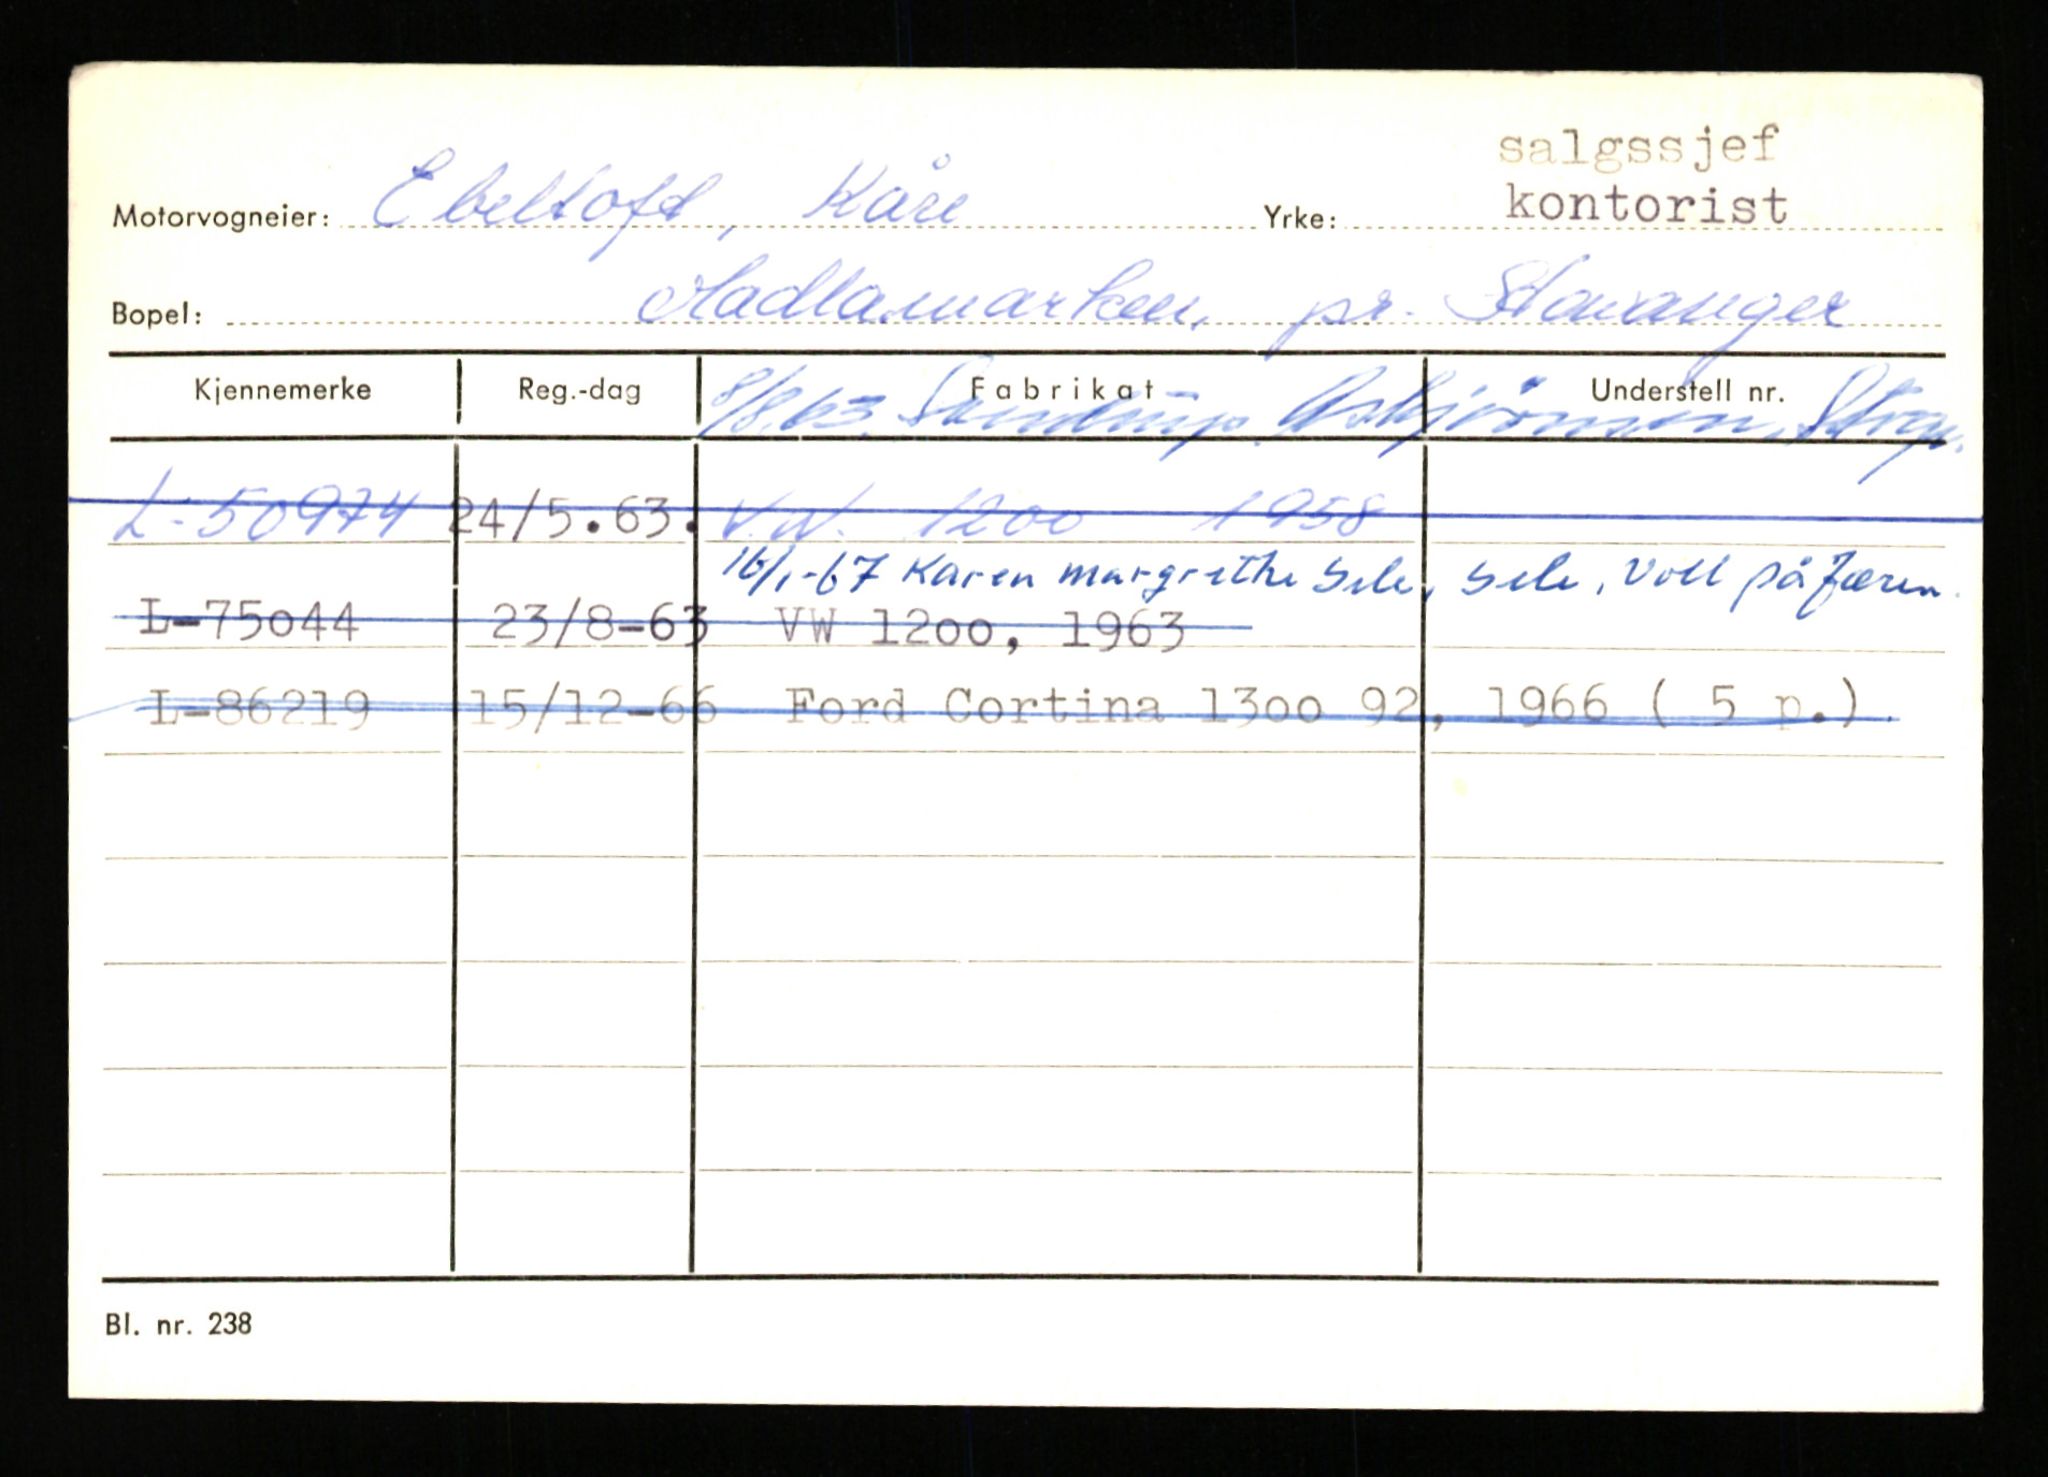 salgssjef
Motorvogneier: Ebeltoft, Kåre Yrke: kontorist
Bopel: Madlamarken, pr. Stavanger
Kjennemerke Reg.-dag Fabrikat Understell nr.
8/8.63. Asbjørnsen, Stvgr.
L-50974 24/5.63. V.W. 1200 1958
16/1-67 Karen margrethe Sele, Sele, Voll på Jæren.
L-75044 23/8-63 VW 1200, 1963
L-86219 15/12-66 Ford Cortina 1300 92, 1966 ( 5 p.)
Bl. nr. 238